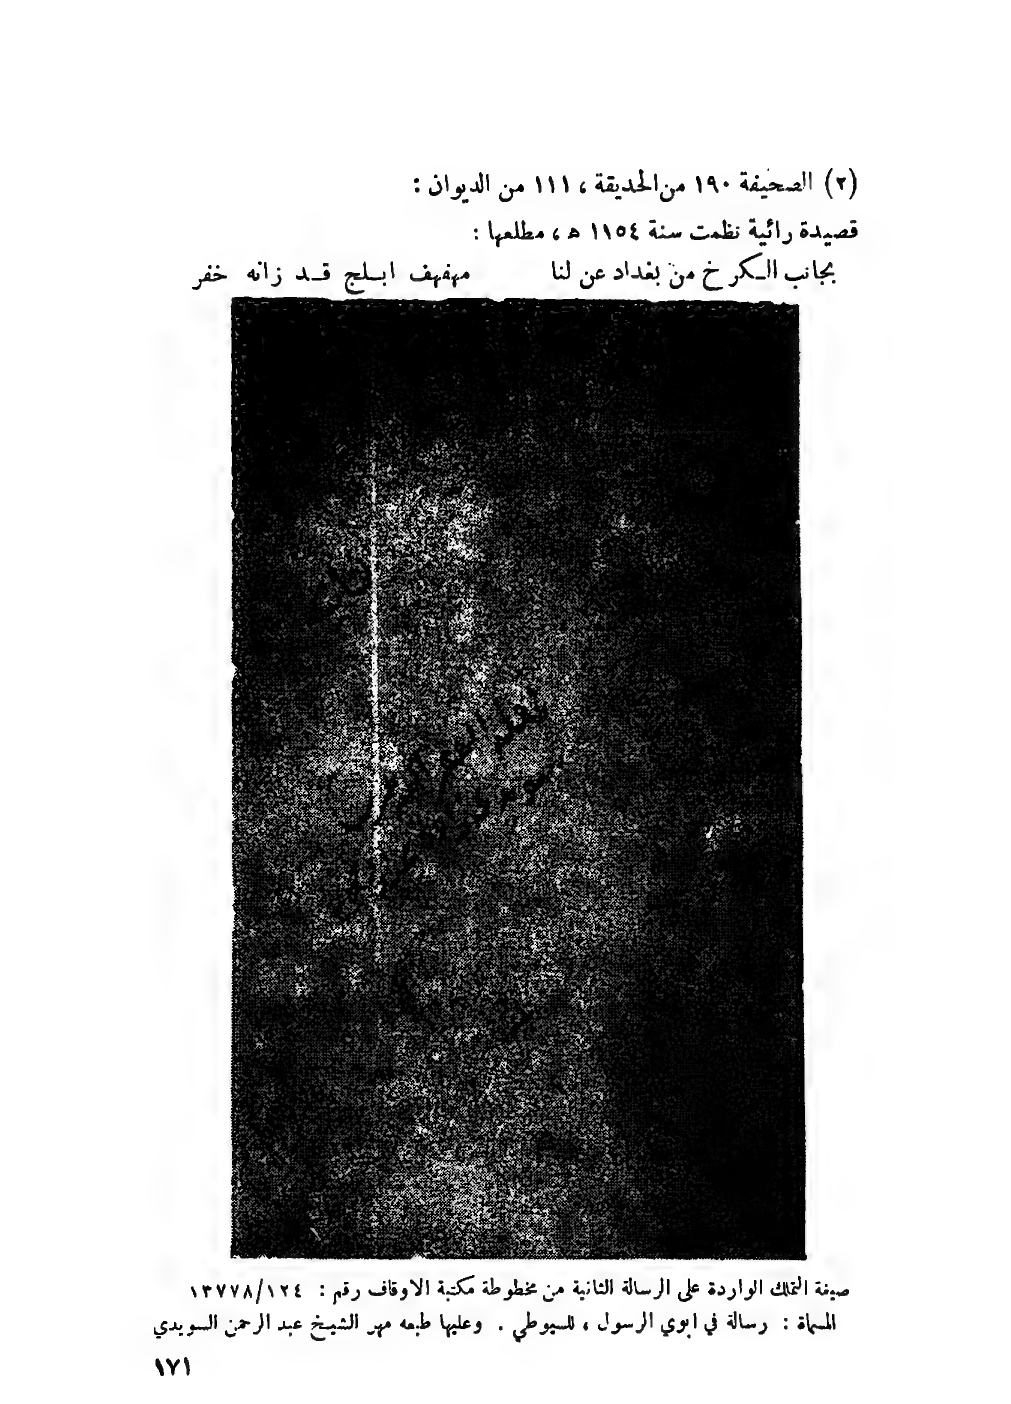 (٢) الصحيفة ١٩٠ من الحديقة ، ١١١ من الديوان :
قصيدة رائية نظمت سنة ١١٥٤ هـ ، مطلعها :
بجانب الـكرخ من بغداد عن لنا مهفهف ابـلج قـد زانه خفر
صيغة التملك الواردة على الرسالة الثانية من مخطوطة مكتبة الاوقاف رقم : ١٣٧٧٨/١٢٤
المسماة : رسالة في ابوي الرسول ، للسيوطي . وعليها طبعه مهر الشيخ عبد الرحمن السويدي
١٧١